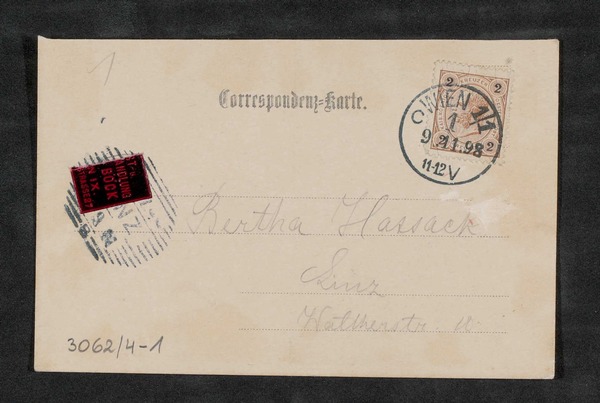 1
Correspondenz-Karte.
2 2
WIEN 1/1
1
9.11.98
11-12V
2
BÖCK
Bertha Hassack
Linz
Waltherstr.
3062/4-1